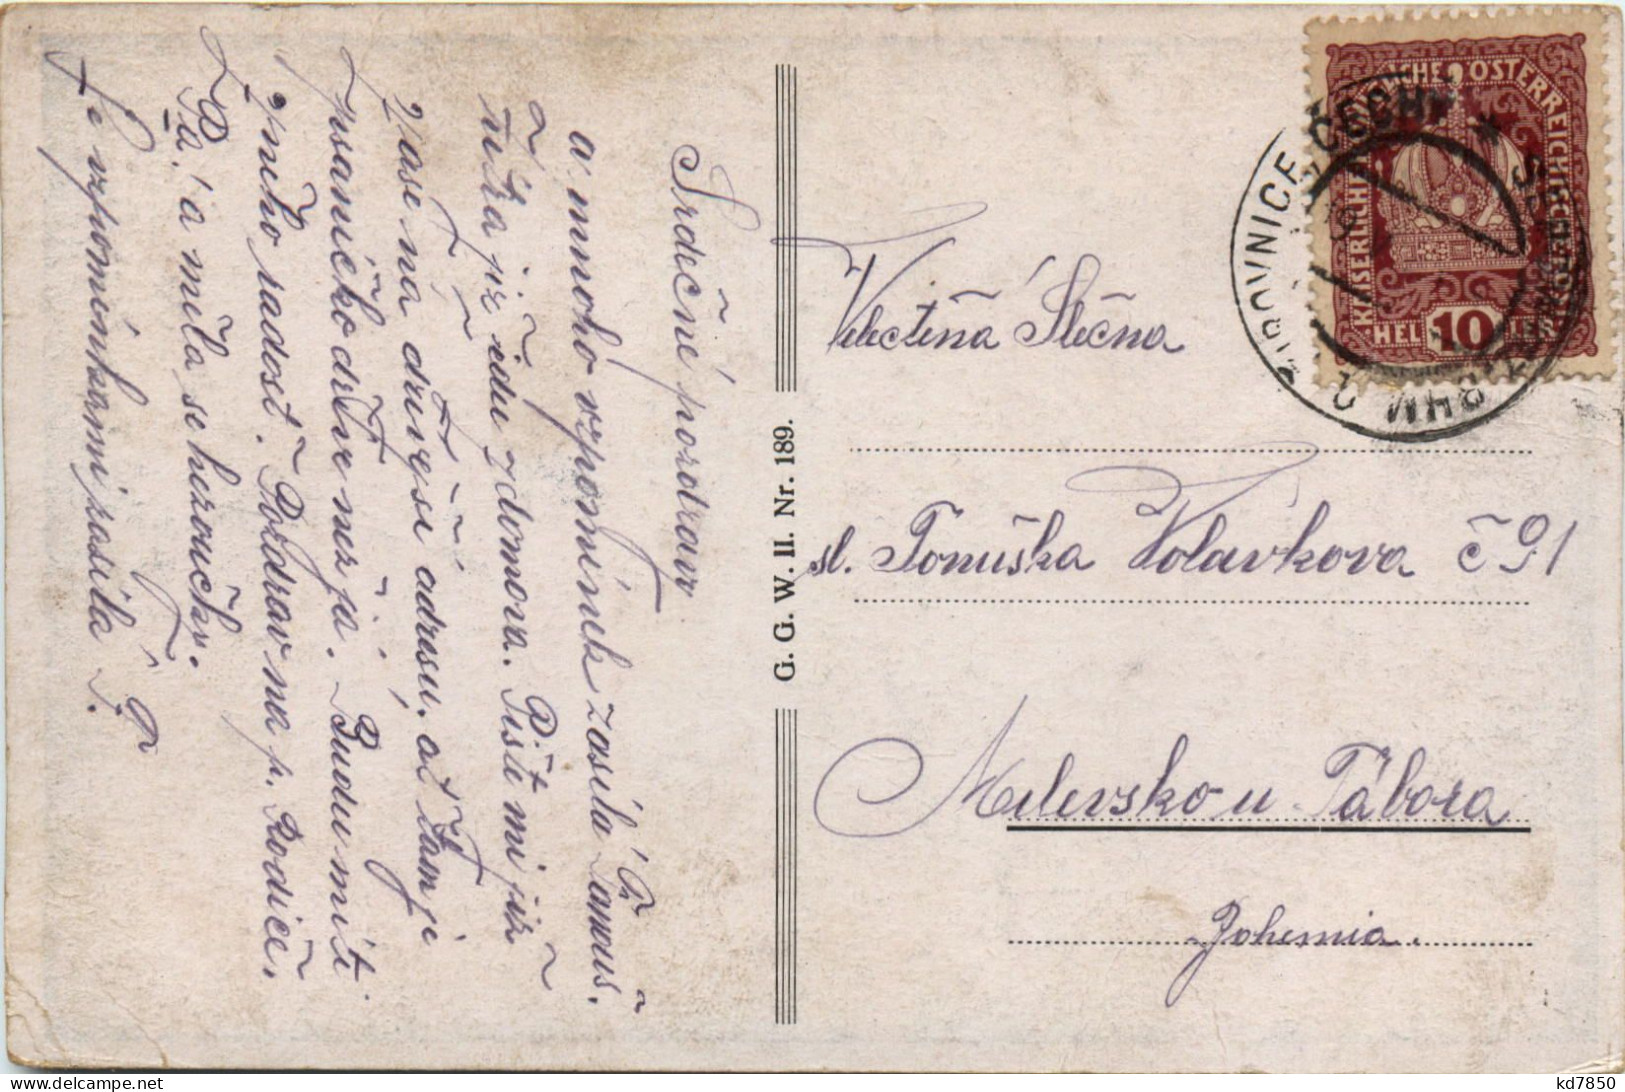 Srdečné pozdrav
a mnoho vzpomínek zasílá Tonus.
zitra již jedu z domova. Pište mi již
zase na druhejsi adresu. at tam je
psaníčko dříve než já. Budu míti
z něho radost. Pozdrav na p. Rodiče.
Pá! a měla se hezoučky.
Se vzpomínkami zasílá T.
G. G. W. II. Nr. 189.
KAISERLICHE KÖNIGLICHE ÖSTERREICHISCHE POST
HELLER 10 HELLER
ŽIROVNICE ČECHY
Velectěná Slečna
sl. Tonuška Volavkova č 91
Milevsko u Tábora
Bohemia.
kd7850